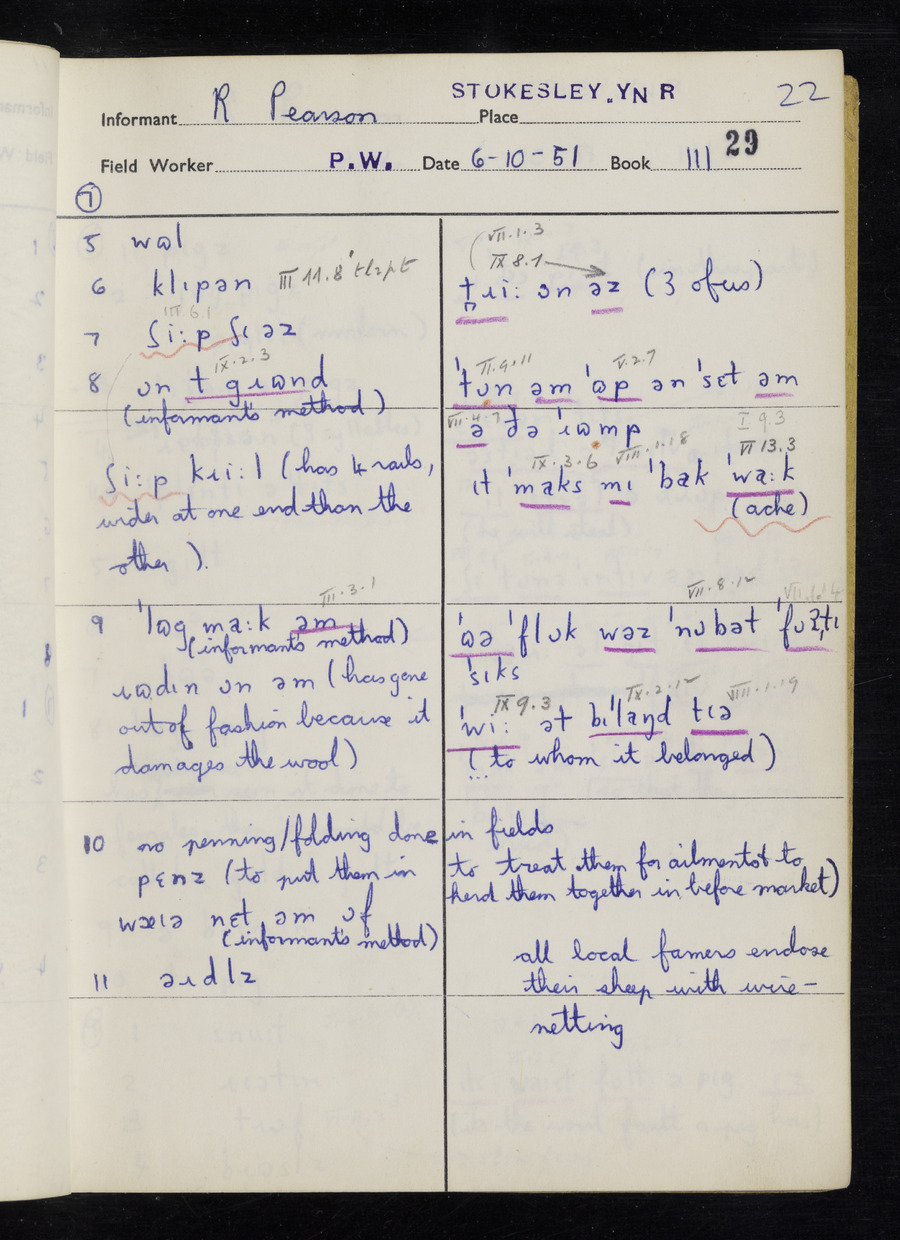 STOKESLEY.YN R 22
Informant R Pearson Place
Field Worker P.W. Date 6-10-51 Book III 29
7
5 wɒl
6 klɪpən III 11.8
III 6.1
7 ʃi:p ʃɪəz
IX.2.3
8 ɔn t gɹɒnd
(informant's method)
ʃi:p kɹi:l (has 4 rails,
wider at one end than the
other).
III.3.1
9 'lɒg ma:k əm
(informant's method)
ɹɒdɪn ɔn əm (has gone
out of fashion because it
damages the wool)
10 no penning/folding done in fields
pɛnz (to put them in to treat them for ailments & to
herd them together in before market)
nɛt əm ɔf
(informant's method)
11
VII.1.3
IX 8.1
tɹi: ɔn əz (3 of us)
II.9.11 V.2.7
'tɔn əm 'ɒp ən 'sɛt əm
VII.4.7 I 9.3
ə ðə ɹɒmp
IX.3.6 VIII.1.18 VI 13.3
ɪt 'maks mɪ 'bak 'wa:k
(ache)
VII.8.12
flɔk wəz 'nɔbət
'sɪks
IX 9.3 IX.2.12 VIII.1.19
'wi: ət bɪ'laŋd tɪə
(to whom it belonged)
all local farmers enclose
their sheep with wire-
netting